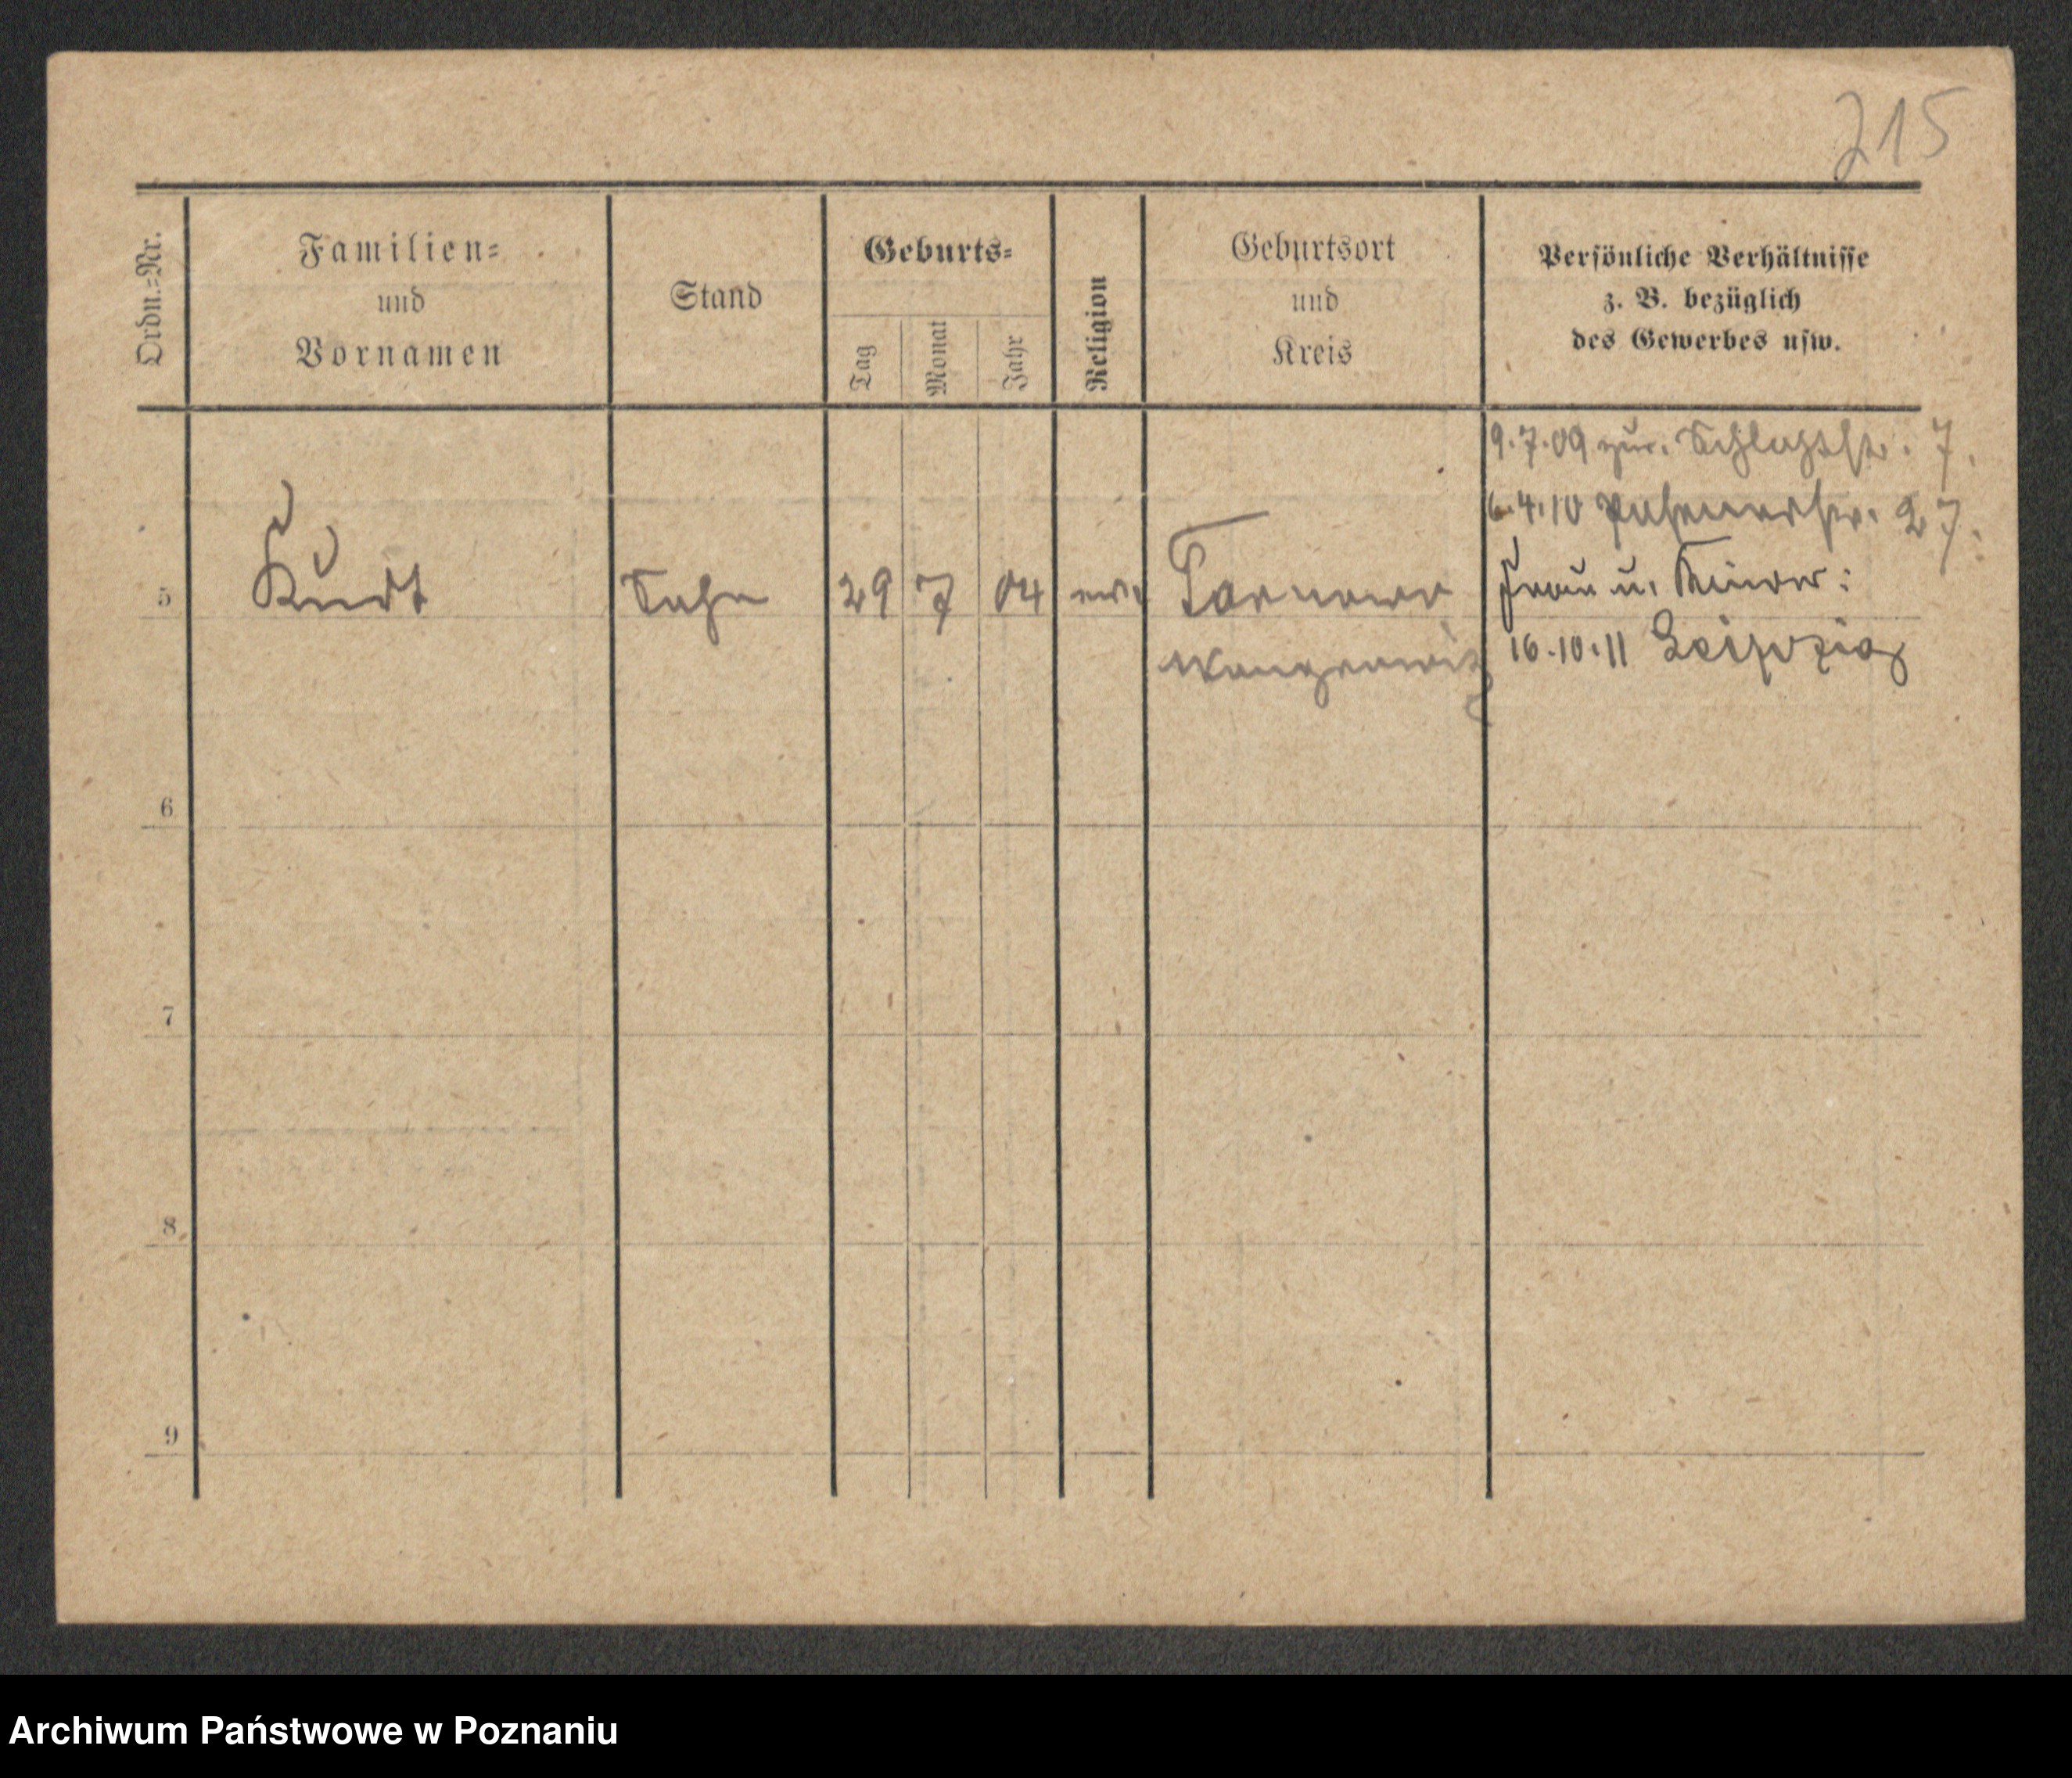 215
Ordn.=Nr.
Familien=
und
Vornamen
Stand
Geburts=
Tag
Monat
Jahr
Religion
Geburtsort
und
Kreis
Persönliche Verhältnisse
z. B. bezüglich
des Gewerbes usw.
9.7.09 zur. 7.
6.4.10 Posenerstr. 27.
5 Kurt Sohn 29 7 04 ev. Frau u. Kinder:
Wongrowitz 16.10.11 Leipzig
6
7
8
9
Archiwum Państwowe w Poznaniu